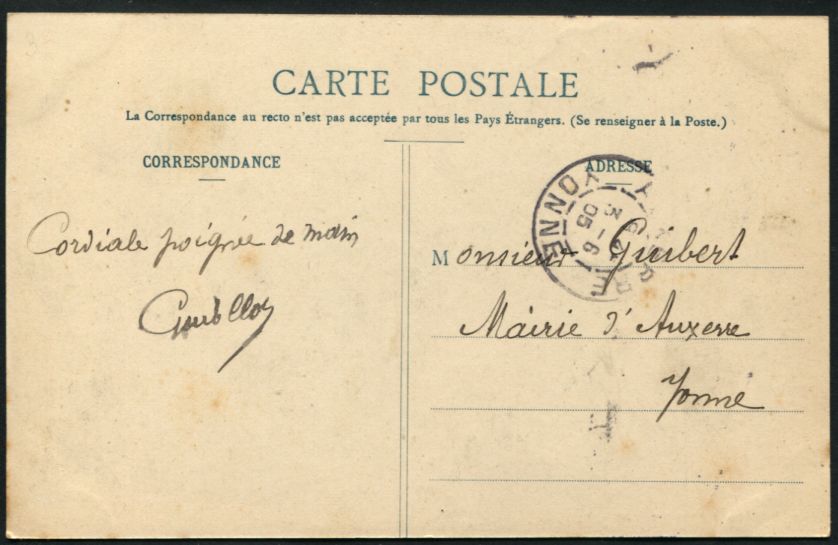 CARTE POSTALE
La Correspondance au recto n'est pas acceptée par tous les Pays Étrangers. (Se renseigner à la Poste.)
CORRESPONDANCE
Cordiale poignée de main
ADRESSE
Monsieur Guibert
Mairie d'Auxerre
Yonne
YONNE
05